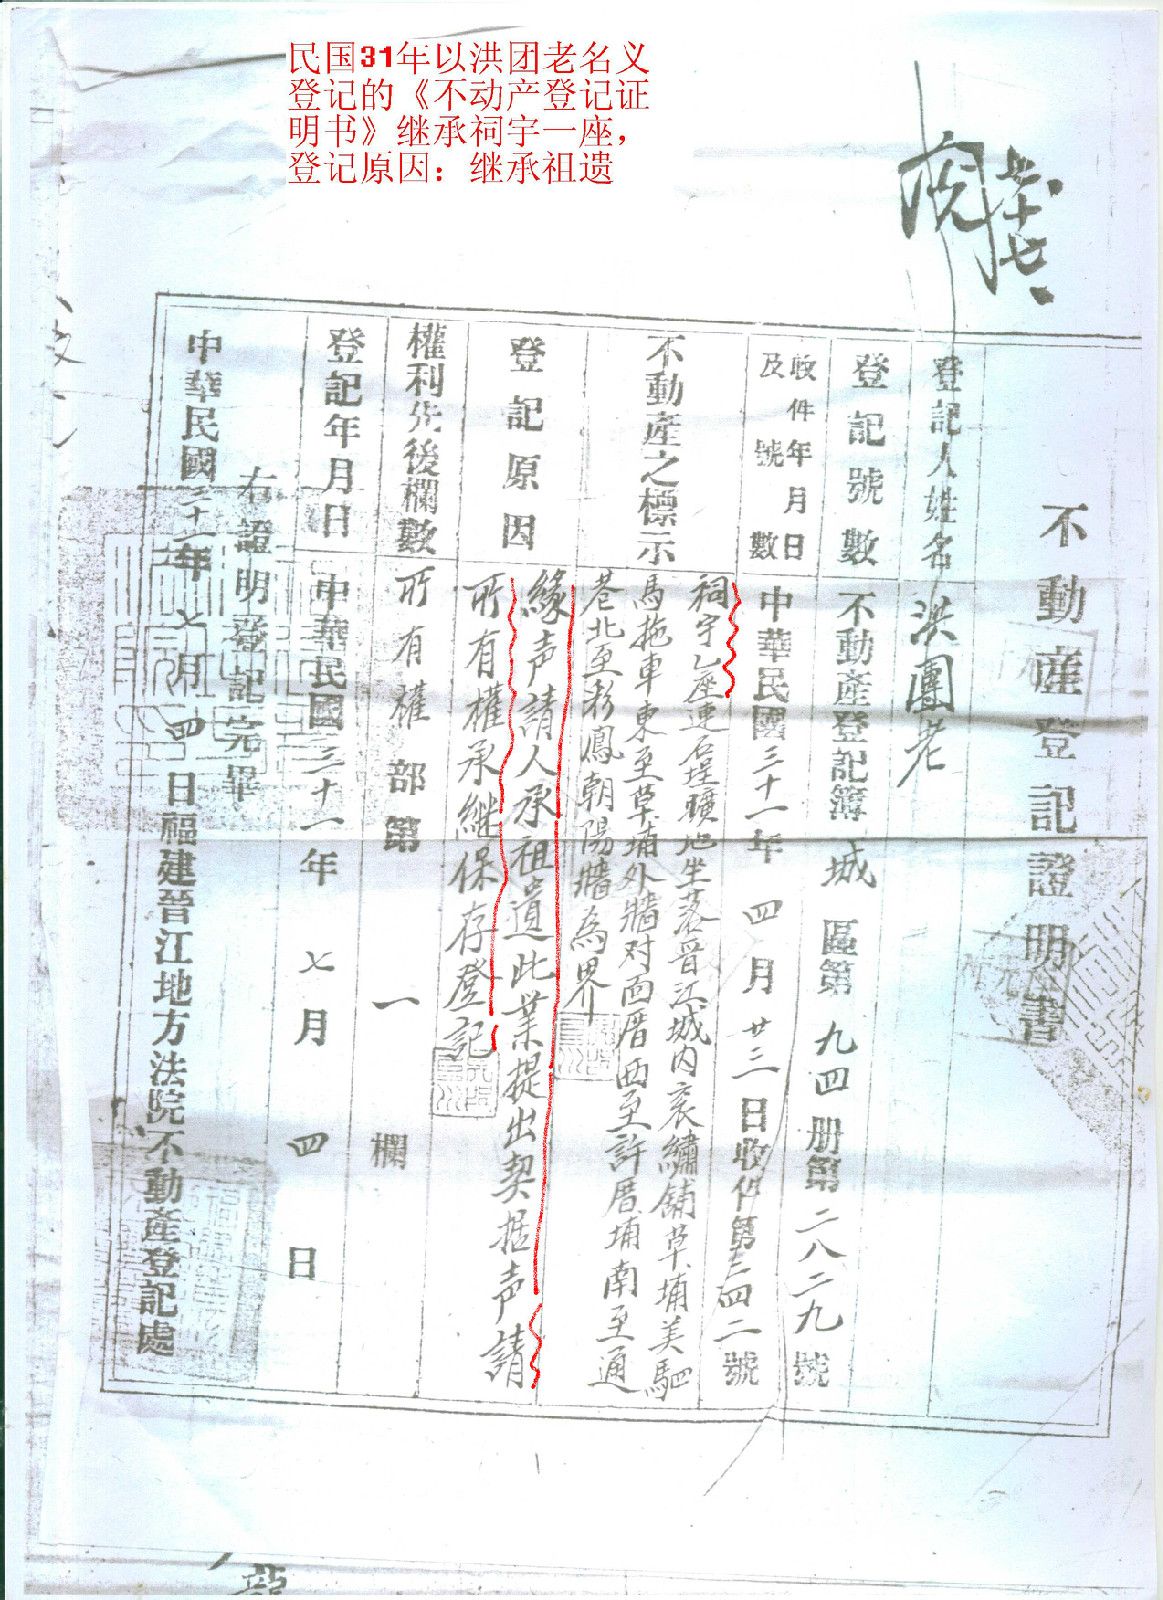 民国31年以洪团老名义
登记的《不动产登记证
明书》继承祠宇一座，
登记原因：继承祖遗
不動産登記證明書
登記人姓名 洪團老
登記號數 不動產登記簿 城 區第 九四 册第 二八二九 號
收件年月日及號數 中華民國 三十一年 四月 廿三 日收件第 三四二 號
不動産之標示 祠宇乙座連石埕曠地坐落晋江城内衮繡鋪草埔美駟
馬拖車東至草埔外牆对面厝西至許厝埔南至通
巷北至彩鳳朝陽牆為界
登記原因 緣声請人承祖遺此業提出契据声請
所有權承継保存登記
權利先後欄數 所有權部第 一 欄
登記年月日 中華民國 三十一年 七月 四日
右證明登記完畢
中華民國 三十一年 七月 四日 福建晉江地方法院不動產登記處